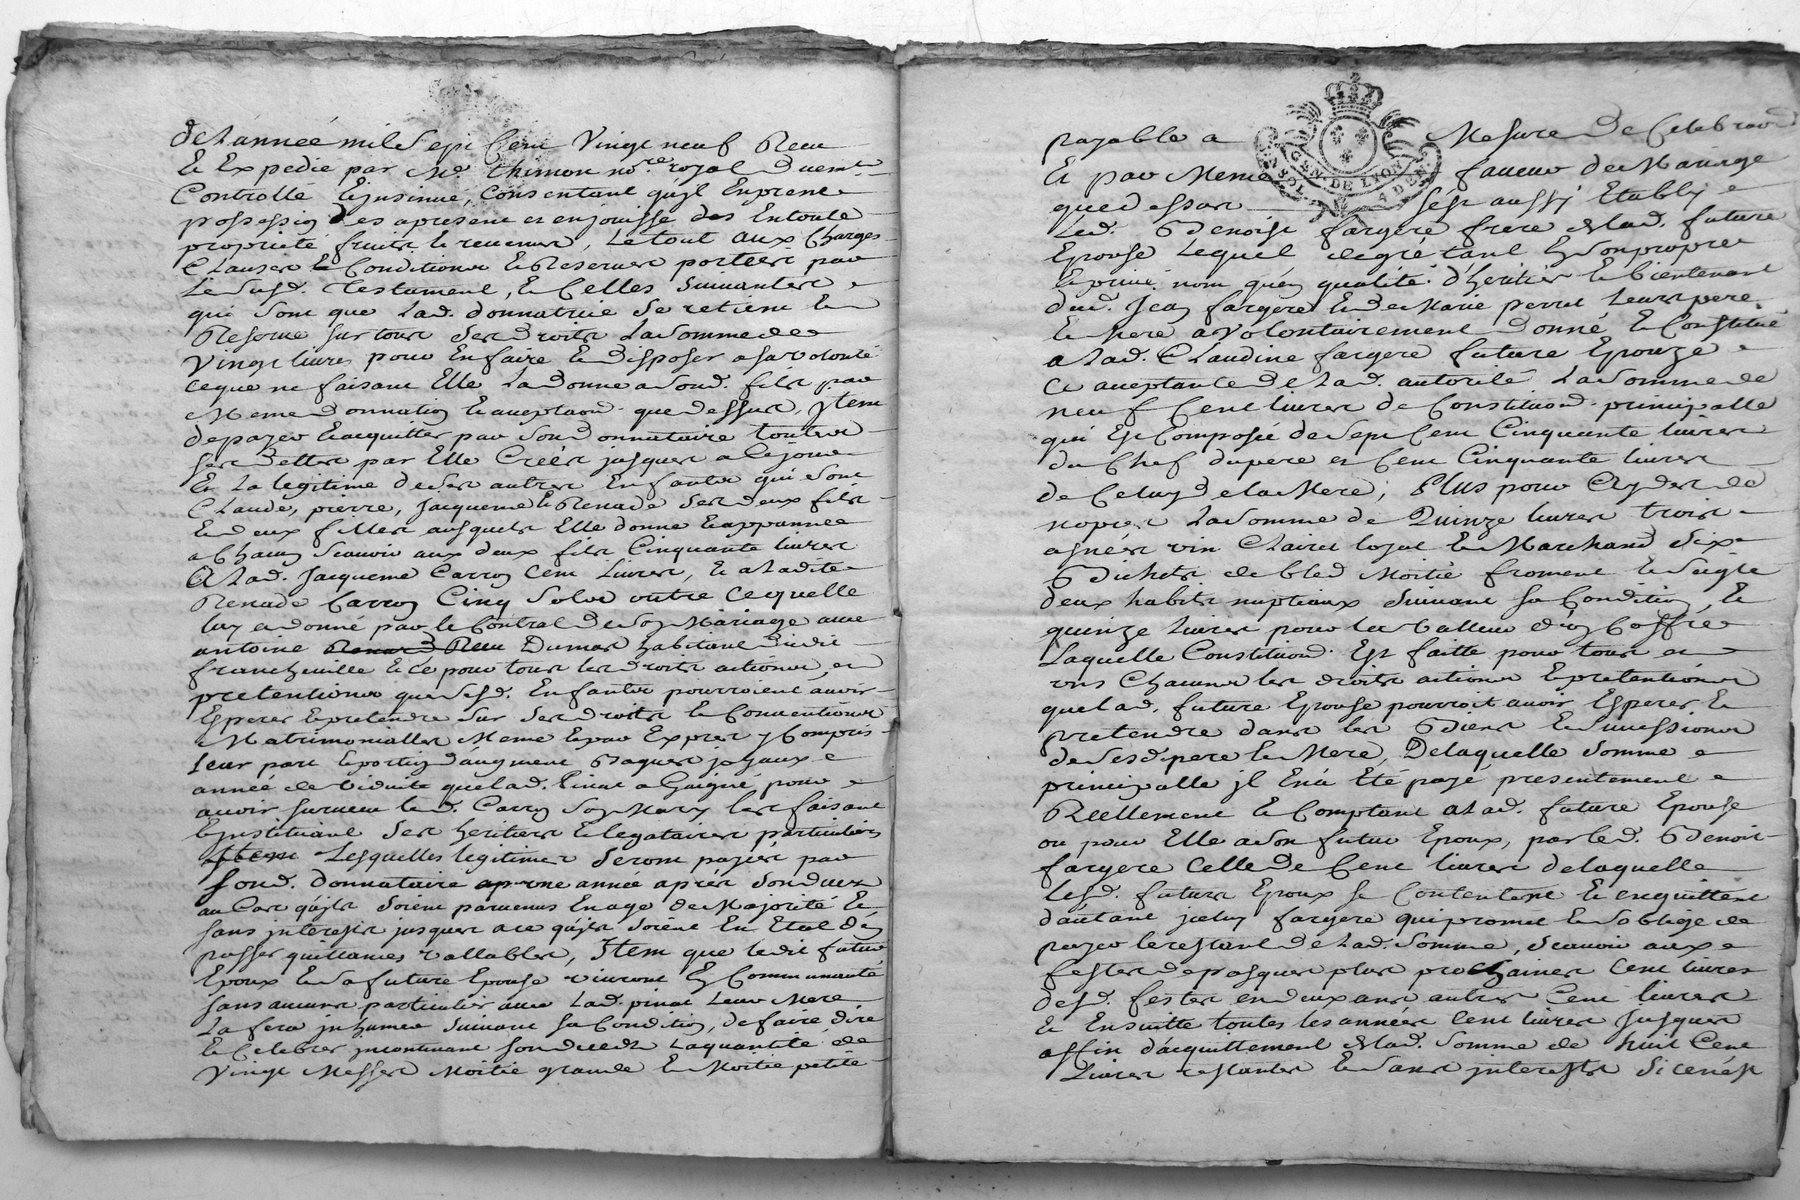 de L'année mil Sept Cent Vingt neuf Receu
Et Expedié par Me Thimon nore. royal Duemt.
Controllé Et jnsinué, Consentant qu'jl Enprene
possession des apresent et enjouisse des Entoute
propriété fruits Et revenus, Le tout aux Charges
Clauses Et Conditions Et Reserves portées par
Le susd. Testament, Et Celles Suivantes
qui sont que Lad. donnatrice Se retient Et
Reserve sur tous Ses droits La somme de
Vingt livres pour En faire Et disposer a sa volonté
ce que ne faisant Elle La donne a sond. fils par
Meme donnation Et acceptaon. que dessus, jtem
de payer Et acquitter par Son donnataire toutes
ses dettes par Elle Créés jusques a Ce jour
Et La legitime de Ses autres Enfants qui Sont
Claude, pierre, Jacqueme Et Renade Ses deux fils
Et deux filles ausquels Elle donne Et appannee
a Chacun Scavoir aux deux fils Cinquante livres
A Lad. Jacqueme Carron Cent Livres, Et a Ladite
Renade Carron Cinq Sols outre Ce quelle
luy a donné par Le Contrat de Son Mariage avec
antoine Dumas habitant dudit
francheville Et ce pour tous les droits actions et
pretentions que Sesd. Enfants pourroient avoir
Esperer Et pretendre Sur Ses droits Et Conventions
Matrimonialles Meme Et par Exprés y Compris
leur part Et portion d'augment Bagues joyaux
année de Viduité que Lad. pinat a Gaigné pour
avoir survecu Led. Carron Son Mary les faisant
Et jnstituant Ses heritiers Et legataires particuliers
Lesquelles legitimes Seront payées par
Sond. donnataire une année aprés Son deces
au Cas qu'jls Soient parvenus En age de Majorité Et
sans jnterests jusques a ce qu'jls Soient En Etat d'en
passer quittances vallables, Item que Ledit futur
Epoux Et Sa future Epouse vivront En Communauté
sans aucun particulier avec Lad. pinat Leur Mere
La fera jnhumer Suivant Sa Condition, de faire dire
Et Celebrer jncontinant Son decedz La quantité de
Vingt Messes Moitié grande Et Moitié petite
payable a Mesure de Celebraon
GEN. DE LYON
Et par Meme faveur de Mariage
que dessus s'est aussy Etably
Led. Benoist fargere frere de Lad. future
Epouse Lequel de gré tant En Son propre
Et privé nom qu'en qualité d'heritier Et bientenant
dud. Jean fargere Et de Marie perret Leurs pere
Et Mere a Volontairement donné Et Constitué
a Lad. Claudine fargere future Epouze
Ce acceptante de Lad. autorité La Somme de
neuf Cent livres de Constituaon. principalle
qui Est Composée de Sept Cent Cinquante livres
du Chef du pere et Cent Cinquante livres
de Celuy de la Mere, Plus pour
nopces La Somme de Quinze livres trois
asnées vin Clairet loyal Et Marchand Six
Bichets de bled Moitié froment Et Seigle
deux habits nuptiaux Suivant Sa Condition, Et
quinze Livres pour La Valleur d'un Coffre
Laquelle Constituaon. Est faitte pour tous et
uns Chacuns les droits actions Et pretentions
que Lad. future Epouse pourroit avoir Esperer Et
pretendre dans les Biens Et Successions
de Sesd. pere Et Mere, De laquelle Somme
principalle jl En a Eté payé presentement
Réellement Et Comptant a Lad. future Epouse
ou pour Elle a Son futur Epoux, par Led. Benoit
fargere Celle de Cent livres de laquelle
Lesd. futurs Epoux Se Contentent Et en quittent
d'autant jceluy fargere qui promet Et S'oblige de
payer le restant de Lad. Somme, Scavoir aux
festes de pasques plus prochaines Cent livres
desd. festes en deux ans autres Cent livres
Et Ensuitte toutes les années Cent livres Jusques
affin d'acquittement de Lad. Somme de huit Cent
Livres restantes Et Sans jnterests Si ce n'est